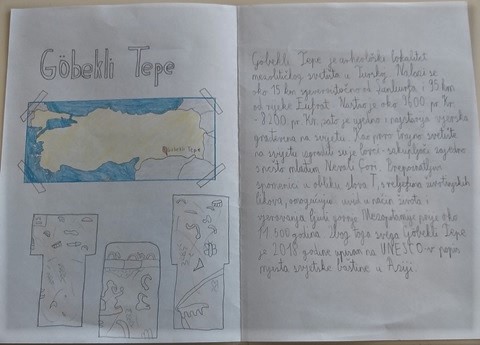 Göbekli Tepe
Göbekli Tepe
Göbekli Tepe je arheološki lokalitet
mezolitičkog svetišta u Turskoj. Nalazi se
oko 15 km sjeveroistočno od Şanliurfa, i 95 km
od rijeke Eufrat. Nastao je oko 9600 pr. Kr.
- 8200. pr. Kr. zato je ujedno i najstarija vjerska
građevina na svijetu. Kao prvo znano svetište
na svijetu sgradili su je lovci-sakupljači zajedno
s nešto mlađim Nevali Çori. Prepoznatljivi
spomenici u obliku slova T, s reljefima životinjskih
likova, omogućuju uvid u način života i
vjerovanja ljudi gornje Mezopotamije prije oko
11.500 godina. Zbog toga svega Göbekli Tepe
je 2018. godine upisan na UNESCO-v popis
mjesta svjetske baštine u Aziji.